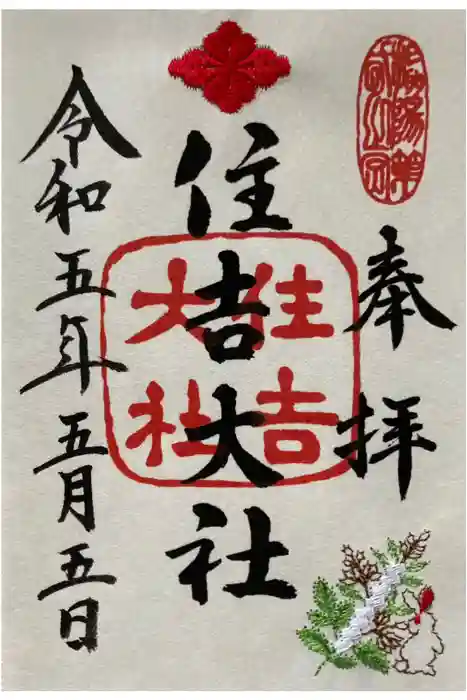 奉拝
住吉大社
住吉
大社
令和五年五月五日